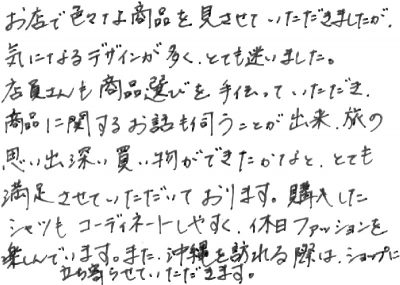 お店で色々な商品を見させていただきましたが、
気になるデザインが多く、とても迷いました。
店員さんも商品選びを手伝っていただき、
商品に関するお話も伺うことが出来、旅の
思い出深い買い物ができたかなと、とても
満足させていただいております。購入した
シャツも コーディネートしやすく、休日ファッションを
楽しんでいます。また、沖縄を訪れる際は、ショップに
立ち寄らせていただきます。